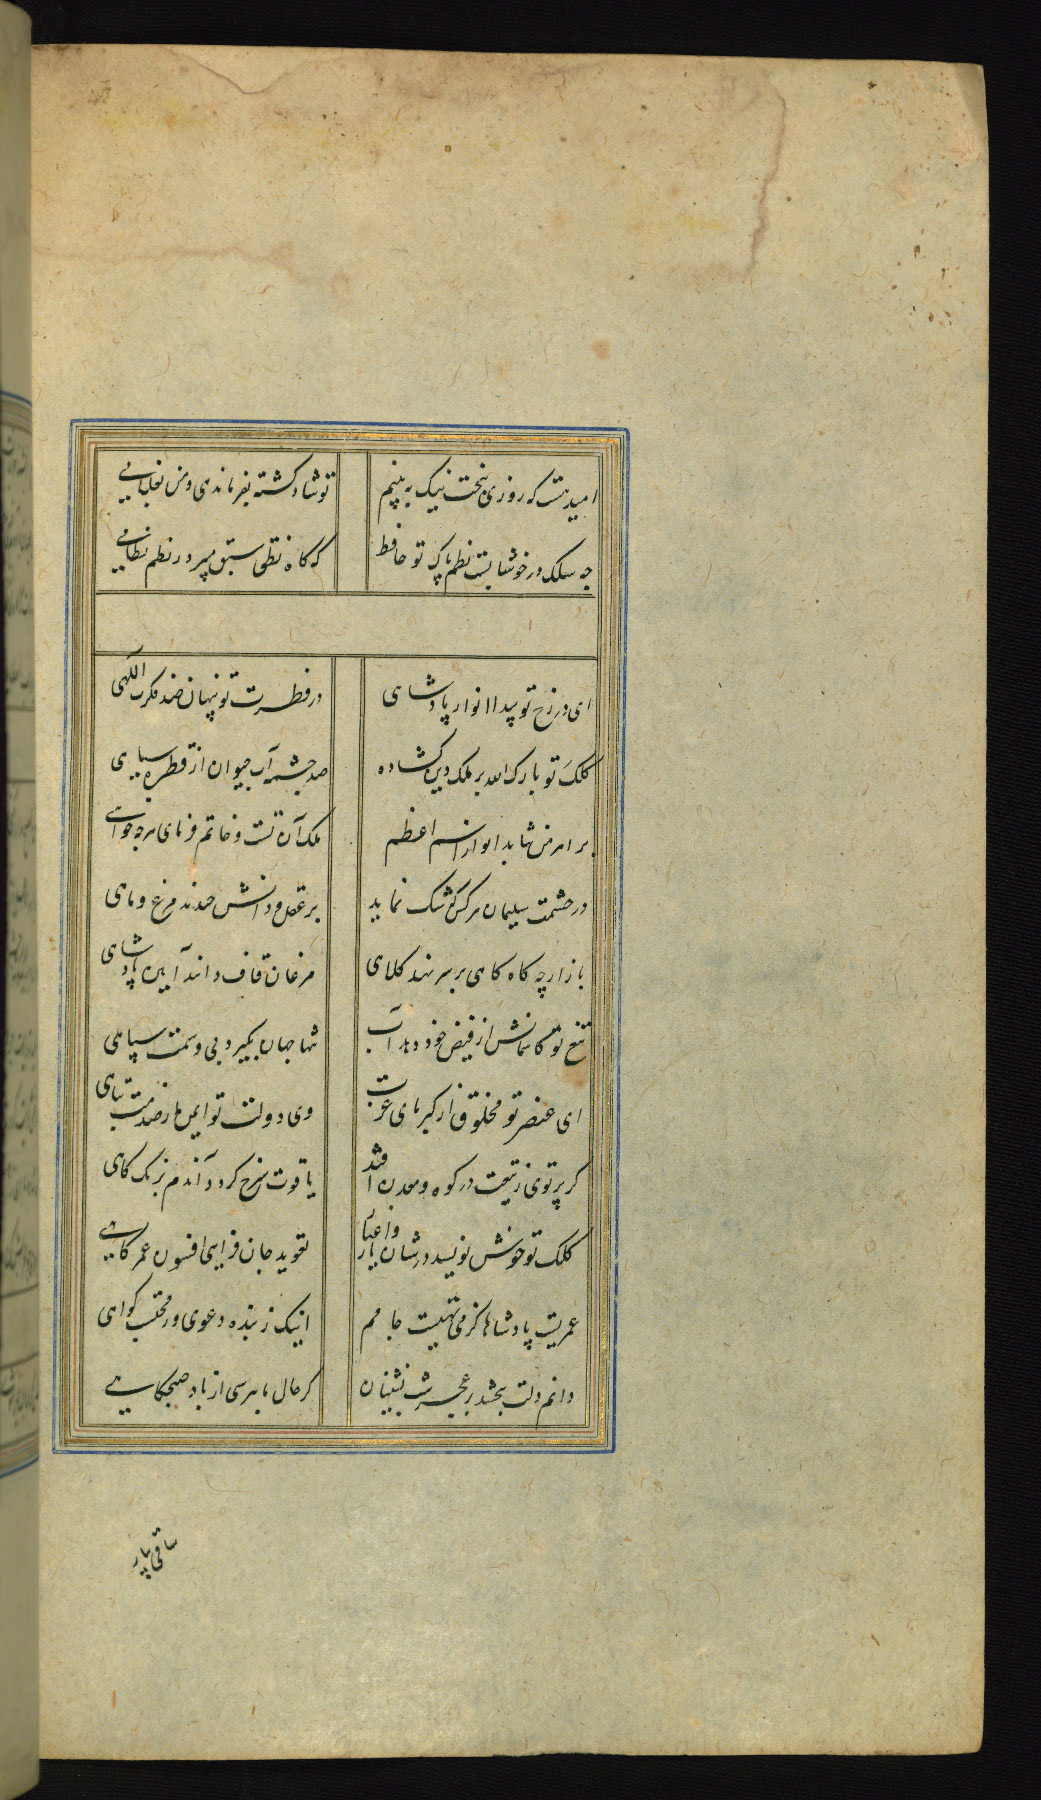 امیدهست که روزی ببخت نیک به بینم
تو شاد گشته بفرماندهی و من بغلامی
چه سلک در خوشابست نظم پاک تو حافظ
که گاه نظم سبق میبرد ز نظم نظامی
ای در رخ تو پیدا انوار پادشاهی
در فطرت تو پنهان صد فکرت الهی
کلک تو بارک الله بر ملک و دین گشاده
صد چشمه آب حیوان از قطره سیاهی
بر اهرمن نتابد انوار اسم اعظم
ملک آن تست و خاتم فرمای هرچه خواهی
در حشمت سلیمان هر کس که شک نماید
بر عقل و دانش خندند مرغ و ماهی
باز ارچه گاه گاهی بر سر نهد کلاهی
مرغان قاف دانند آیین پادشاهی
تیغ تو کاسمانش از فیض خود دهد آب
تنها جهان بگیرد بی و منت سپاهی
ای عنصر تو مخلوق از کبریای عزت
وی دولت تو ایمن از تباهی
گر پرتوی ز تیغت در کوه و معدن افتد
یاقوت سرخ گردد آندم برنگ کاهی
کلک تو خوش نویسد در شان یار و اغیار
تعوید جان فزایی افسون عمر کاهی
عمریست پادشاها کز می تهیست جامم
اینک ز بنده دعوی وز محتسب گواهی
دانم دلت ببخشد بر عجز شب نشینان
گر حال ما بپرسی از باد صبحگاهی
ساقی بیار